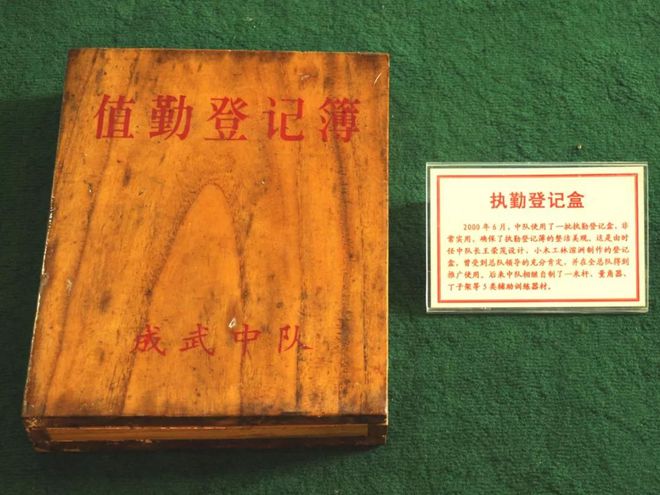 值勤登记簿
成武中队
执勤登记盒
2000年6月，中队使用了一批执勤登记盒，非
常实用，确保了执勤登记簿的整洁美观。这是由时
任中队长王荣茂设计、小木工林滨洲制作的登记
盒，曾受到总队领导的充分肯定，并在全总队得到
推广使用。后来中队相继自制了一米杆、量角器、
丁子架等5类辅助训练器材。